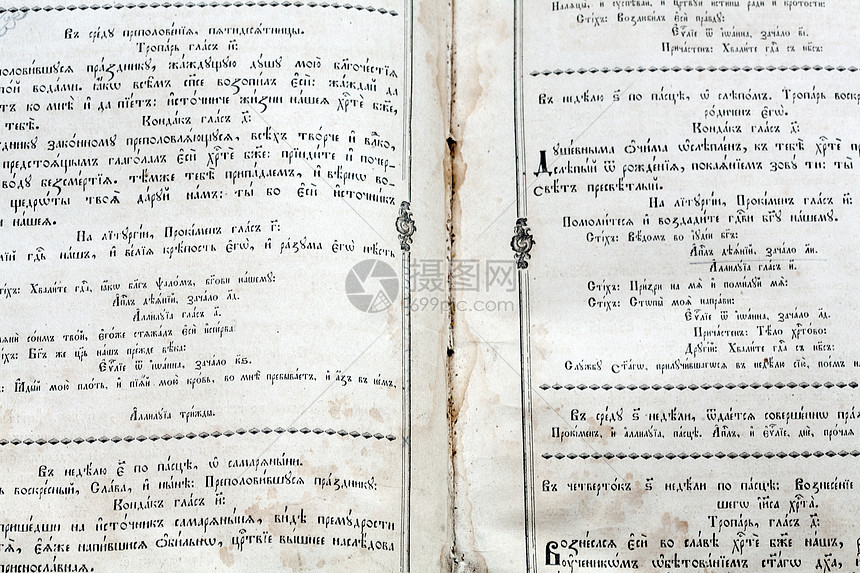 Въ сре́дꙋ преполове́нїѧ, пѧтидесѧ́тницы.
Тропа́рь гла́съ и҃:
пра́здникꙋ, жа́ждꙋщꙋю дꙋ́шꙋ мою̀ благоче́стїѧ
вода́ми. ꙗ҆́кѡ всѣ̑мъ сп҃се возопи́лъ є҆сѝ: жа́ждай да
ко мнѣ̀ и҆ да пїе́тъ: и҆сто́чниче жи́зни на́шеѧ хрⷭ҇тѐ бж҃е,
тебѣ̀.
Конда́къ гла́съ д҃:
зако́нномꙋ преполовлѧ́ющꙋсѧ, всѣ́хъ тво́рче и҆ влⷣко,
предстоѧ́щымъ глаго́лалъ є҆сѝ хрⷭ҇тѐ бж҃е: прїиди́те и҆ поче-
во́дꙋ безсме́ртїѧ. тѣ́мже тебѣ̀ припа́даемъ, и҆ вѣ́рнѡ во-
щедрѡ́ты твоѧ̑ да́рꙋй на́мъ: ты́ бо є҆сѝ и҆сто́чникъ
на́шеѧ.
На лїтꙋргі́и, Проки́менъ гла́съ г҃:
гдⷭ҇ь на́шъ, и҆ ве́лїѧ крѣ́пость є҆гѡ̀, и҆ ра́зꙋма є҆гѡ̀ нѣ́сть
Хвали́те гдⷭ҇а, ꙗ҆́кѡ бл҃гъ ѱало́мъ, бг҃ови на́шемꙋ:
А҆пⷭ҇лъ дѣѧ́нїй, зача́ло л҃д.
А҆ллилꙋ́їа гла́съ а҃.
со́нмъ тво́й, є҆го́же стѧжа́лъ є҆сѝ и҆спе́рва:
Бг҃ъ же цр҃ь на́шъ пре́жде вѣ́ка:
Є҆ѵⷢ҇лїе ѿ і҆ѡа́нна, зача́ло к҃ѕ.
мою̀ пло́ть, и҆ пїѧ́й мою̀ кро́вь, во мнѣ̀ пребыва́етъ, и҆ а҆́зъ въ не́мъ,
А҆ллилꙋ́їа три́жды.
Въ недѣ́лю є҃ по па́сцѣ, ѡ҆ самарѧны́ни.
воскре́сный, Сла́ва, и҆ ны́нѣ: Преполови́вшꙋсѧ пра́здникꙋ:
Конда́къ гла́съ и҃:
прише́дши на и҆сто́чникъ самарѧны́нѧ, ви́дѣ премꙋ́дрости
є҆ѧ́же напи́вшисѧ ѻ҆би́льнѡ, црⷭ҇твїе вы́шнее наслѣ́дова
присносла́внаѧ.
и҆ оу҆спѣва́й, и҆ црⷭ҇твꙋй и҆́стины ра́ди и҆ кро́тости:
Сті́хъ: Возлюби́лъ є҆сѝ пра́вдꙋ:
Є҆ѵⷢ҇лїе ѿ і҆ѡа́нна, зача́ло в҃і.
Прича́стенъ: Хвали́те гдⷭ҇а съ нб҃съ:
Въ недѣ́лю ѕ҃ по па́сцѣ, ѡ҆ слѣпо́мъ. Тропа́рь
Конда́къ гла́съ д҃:
Дꙋше́вныма ѻ҆чи́ма ѡ҆слѣпле́нъ, къ тебѣ̀ хрⷭ҇тѐ
слѣпы́й ѿ рожде́нїѧ, покаѧ́нїемъ зовꙋ́ ти: ты̀
свѣ́тъ пресвѣ́тлый.
На лїтꙋргі́и, Проки́менъ гла́съ и҃:
Помоли́тесѧ и҆ воздади́те гдⷭ҇ви бг҃ꙋ на́шемꙋ.
Сті́хъ: Вѣ́домъ во і҆ꙋде́и бг҃ъ:
А҆пⷭ҇лъ дѣѧ́нїй, зача́ло л҃и.
А҆ллилꙋ́їа гла́съ и҃.
Сті́хъ: При́зри на мѧ̀ и҆ поми́лꙋй мѧ̀:
Сті́хъ: Стѡпы̀ моѧ̑ напра́ви:
Є҆ѵⷢ҇лїе ѿ і҆ѡа́нна, зача́ло л҃д.
Прича́стенъ: Тѣ́ло хрⷭ҇то́во:
Дрꙋгі́й: Хвали́те гдⷭ҇а съ нб҃съ:
Слꙋ́жбꙋ ст҃а́гѡ, прилꙋчи́вшагосѧ въ недѣ́лю сїю̀, пое́мъ
Въ сре́дꙋ ѕ҃ недѣ́ли, ѿдае́тсѧ соверше́ннѡ
Проки́менъ, и҆ а҆ллилꙋ́їа, па́сцѣ. А҆пⷭ҇лъ, и҆ є҆ѵⷢ҇лїе, днѐ, про́чаѧ
Въ четверто́къ ѕ҃ недѣ́ли по па́сцѣ: Вознесе́нїе
шегѡ̀ і҆и҃са хрⷭ҇та̀.
Тропа́рь, гла́съ д҃:
Возне́слсѧ є҆сѝ во сла́вѣ хрⷭ҇тѐ бж҃е на́шъ,
оу҆ченикѡ́мъ ѡ҆бѣтова́нїемъ ст҃а́гѡ дх҃а,
摄图网
699pic.com